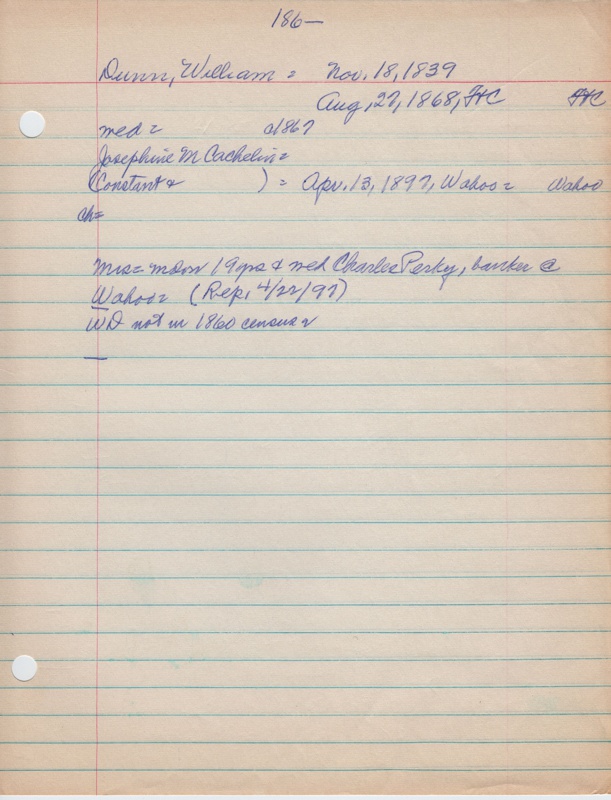 186—
Dunn, William = Nov. 18, 1839
Aug, 27, 1868, FtC FtC
med = c1867
Josephine M Cachelin=
(Constant & ) = Apr. 13, 1897, Wahoo= Wahoo
ch=
Mrs= 19 yrs & med Charles Perky, banker @
Wahoo= (Rep, 4/22/97)
WD not in 1860 census=
—